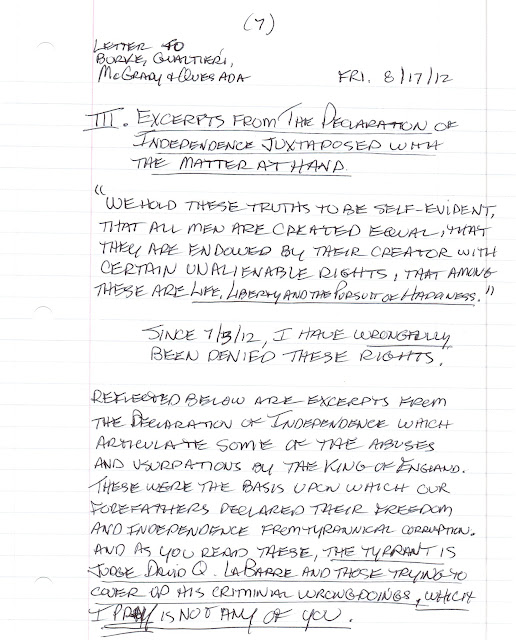 (7)
LETTER TO
BURKE, GUALTIERI,
McGRADY & QUESADA
FRI. 8/17/12
III. EXCERPTS FROM THE DECLARATION OF
INDEPENDENCE JUXTAPOSED WITH
THE MATTER AT HAND
"WE HOLD THESE TRUTHS TO BE SELF-EVIDENT,
THAT ALL MEN ARE CREATED EQUAL, THAT
THEY ARE ENDOWED BY THEIR CREATOR WITH
CERTAIN UNALIENABLE RIGHTS, THAT AMONG
THESE ARE LIFE, LIBERTY AND THE PURSUIT OF HAPPINESS."
SINCE 7/3/12, I HAVE WRONGFULLY
BEEN DENIED THESE RIGHTS.
REFLECTED BELOW ARE EXCERPTS FROM
THE DECLARATION OF INDEPENDENCE WHICH
ARTICULATE SOME OF THE ABUSES
AND USURPATIONS BY THE KING OF ENGLAND.
THESE WERE THE BASIS UPON WHICH OUR
FOREFATHERS DECLARED THEIR FREEDOM
AND INDEPENDENCE FROM TYRANNICAL CORRUPTION.
AND AS YOU READ THESE, THE TYRANT IS
JUDGE DAVID Q. LABARRE AND THOSE TRYING TO
COVER UP HIS CRIMINAL WRONGDOINGS, WHICH
I PRAY IS NOT ANY OF YOU.